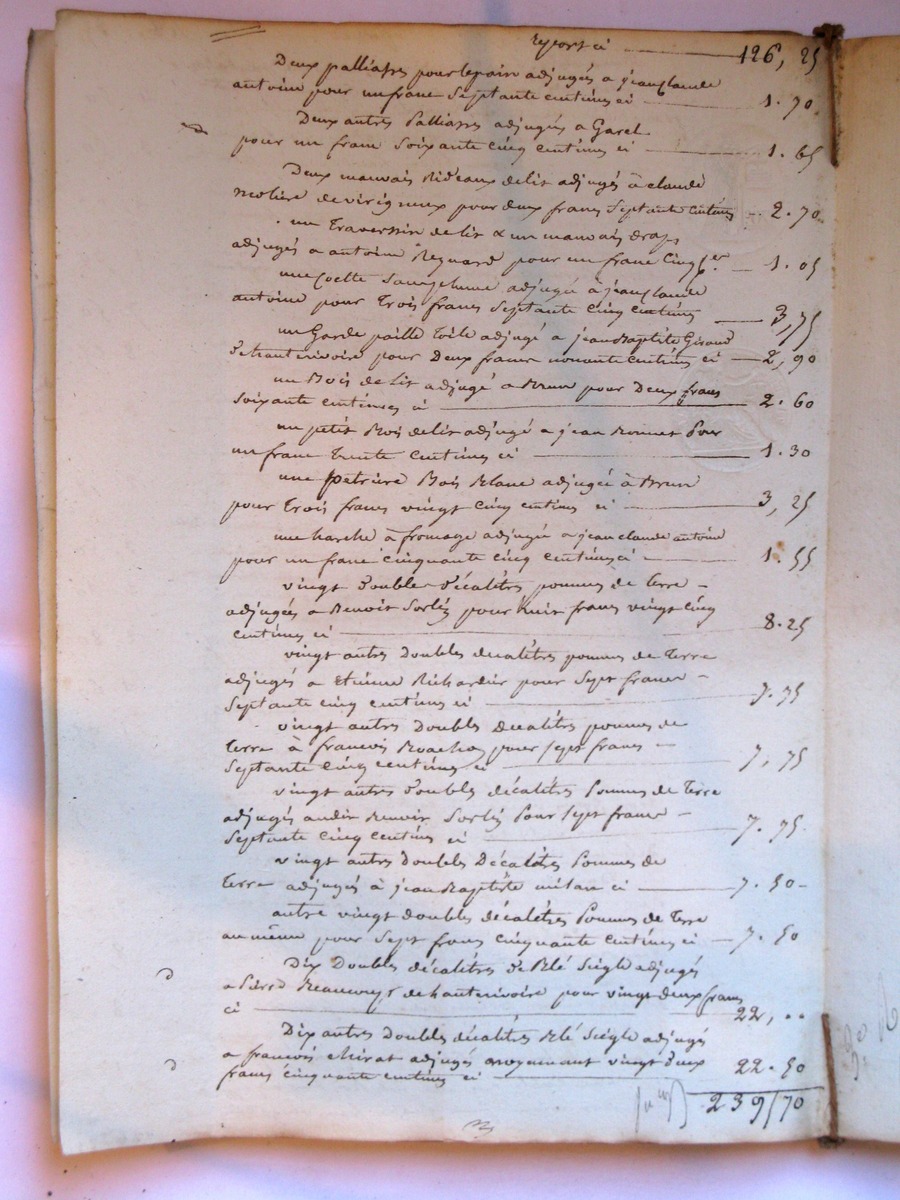 Report ci 126, 25
Deux palliasses pour lepain adjugés a jean claude
antoine pour un franc Septante centimes ci 1.70.
Deux autres Palliasses adjugés a Garel
pour un franc Soixante cinq centimes ci 1.65
Deux mauvais Rideaux delit adjugés à claude
de virigneux pour deux francs Septante centimes 2.70
un Traversin de lit & un mauvais drap
adjugés a antoine Reynard pour un franc Cinq 1.05
une Coette adjugée à jean claude
antoine pour Trois francs Septante cinq centimes 3,75
un Garde paille Toile adjugé a jean Baptiste Giraud
d'hauterivoire pour Deux francs nonante centimes ci 2,90
un Bois de Lit adjugé a Brun pour Deux francs
Soixante centimes ci 2.60
un petit Bois delit adjugé a jean Pour
un franc Trente centimes ci 1.30
une petrière Bois Blanc adjugée à Brun
pour Trois francs vingt cinq centimes ci 3,25
une harche à fromage adjugée a jean claude antoine
pour un franc cinquante cinq centimes ci 1.55
vingt doubles décalitres pommes de Terre
adjugées a Benoit pour huit francs vingt cinq
centimes ci 8.25
vingt autres Doubles decalitres pommes de Terre
adjugés a Etienne Richardier pour Sept francs
Septante cinq centimes ci 7.75
vingt autres Doubles decalitres pommes de
Terre à francois pour sept francs
Septante cinq centimes ci 7.75
vingt autres doubles décalitres Pommes de Terre
adjugés audit Benoit Pour sept francs
Septante cinq centimes ci 7.75
vingt autres Doubles Décalitres Pommes de
Terre adjugés à jean Baptiste ci 7.50
autre vingt doubles décalitres Pommes de Terre
au même pour Sept francs cinquante centimes ci 7.50
Dix Doubles décalitres de Blé Seigle adjugés
a de hauterivoire pour vingt deux francs
ci 22, ..
Dix autres Doubles décalitres Blé Seigle adjugés
a francois adjugés moyennant vingt deux
francs cinquante centimes ci 22.50
239/70